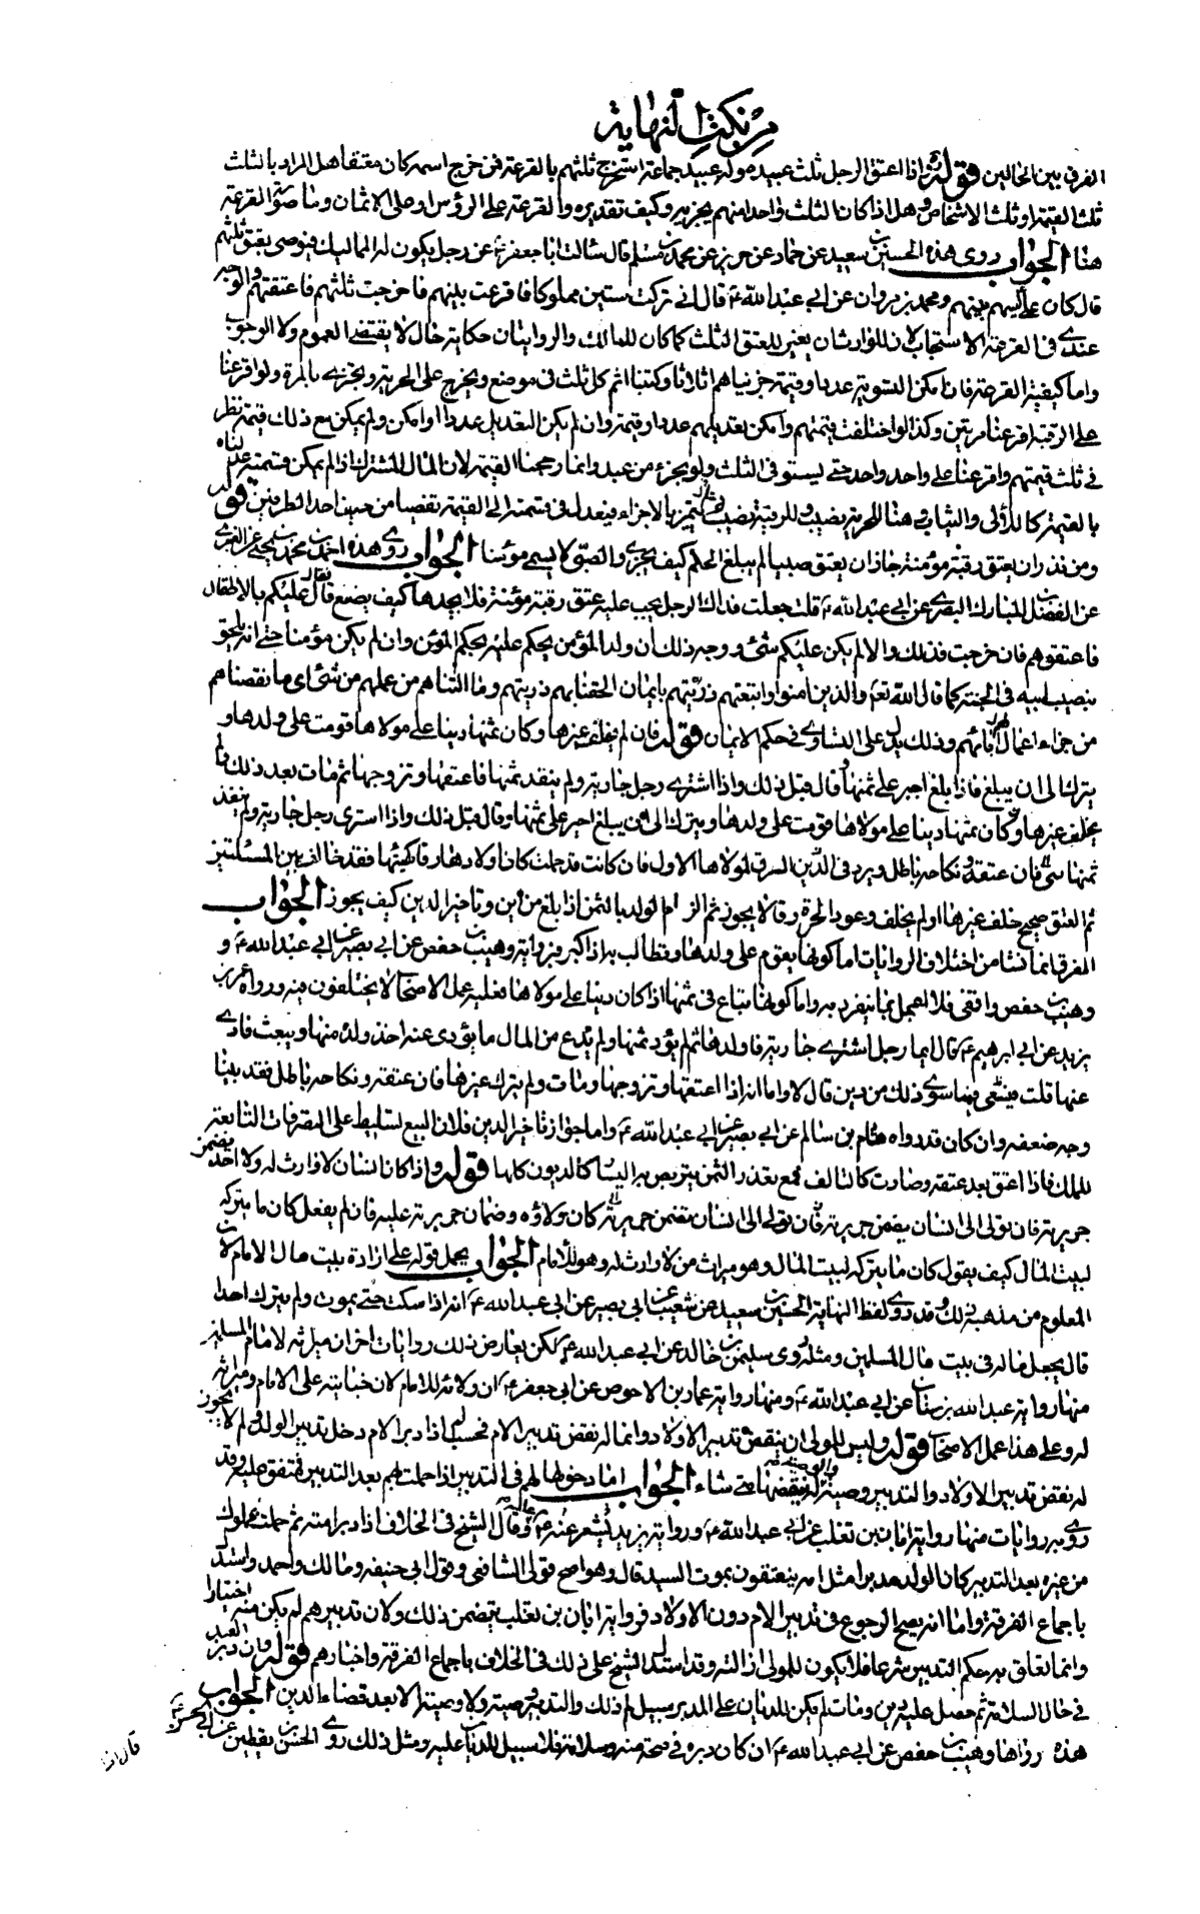 من نكت النهاية
الفرق بين الحالين قوله واذا اعتق الرجل ثلث عبيده وله عبيد جماعة استخرج ثلثهم بالقرعة فمن خرج اسمه كان معتقا هل المراد بالثلث
ثلث القيمة او ثلث الاشخاص وهل اذا كان الثلث واحدا منهم يجزيه وكيف تقديره والقرعة على الرؤس او على الاثمان وما صورة القرعة
هنا الجواب روى هذه الحسين بن سعيد عن حماد عن حريز عن محمد بن مسلم قال سالت ابا جعفر ع عن رجل يكون له المماليك فيوصى بعتق ثلثهم
قال كان على ع يسهم بينهم ومحمد بن مروان عن ابى عبد الله ع قال ان ابى ترك ستين مملوكا فاقرعت بينهم فاخرجت ثلثهم فاعتقتهم والوجه
عندى فى القرعة الاستحباب لان للوارث ان يعين للعتق الثلث كما كان للمالك والروايتان حكاية حال لا يقتضى العموم ولا الوجوب
واما كيفية القرعة فان امكن التسوية عددا وقيمة جزيناهم اثلاثا وكتبنا اسم كل ثلث فى موضع ويخرج على الحرية ويجزى بالمرة ولو اقرعنا
على الرقية اقرعنا مرتين وكذا لو اختلفت قيمتهم وامكن تعديلهم عددا وقيمة وان لم يكن التعديل عددا او امكن ولم يمكن مع ذلك قيمة نظر
فى ثلث قيمتهم واقرعنا على واحد واحد حتى يستوفى الثلث ولو بجزء من عبد وانما رجحنا القيمة لان المال المشترك اذا لم يمكن قسمته عددناه
بالقيمة كاللآلى والثياب وهنا للحرية نصيب وللرقية نصيب ثم بالاجزاء فيعدل فى قسمته الى القيمة تفصيا من حيف احد الطرفين قوله
ومن نذر ان يعتق رقبة مؤمنة جاز ان يعتق صبيا لم يبلغ الحلم كيف يجزى والصبى لا يسمى مؤمنا الجواب روى هذه احمد بن محمد بن يحيى عن العمرى
عن الفضل بن المبارك البصرى عن ابى عبد الله ع قلت جعلت فداك الرجل يجب عليه عتق رقبة مؤمنة فلا يجدها كيف يصنع فقال عليكم بالاطفال
فاعتقوهم فان خرجت فذلك والا لم يكن عليكم شئ ووجه ذلك ان ولد المؤمن يحكم عليه بحكم المؤمن وان لم يكن مؤمنا حتى انه يلحق
بنصيب ابيه فى الجنة كما قال الله تع والذين امنوا واتبعتهم ذريتهم بايمان الحقنا بهم ذريتهم وما التناهم من عملهم من شئ اى ما نقصناهم
من جزاء اعمال ابائهم وذلك يدل على التساوى فى حكم الايمان قوله فان لم يخلف غيرها وكان ثمنها دينا على مولاها قومت على ولدها و
يترك الى ان يبلغ فاذا بلغ اجبر على ثمنها وقال قبل ذلك واذا اشترى رجل جارية ولم ينقد ثمنها فاعتقها وتزوجها ثم مات بعد ذلك ولم
يخلف غيرها وكان ثمنها دينا على مولاها قومت على ولدها ويترك الى ان يبلغ اجبر على ثمنها وقال قبل ذلك واذا اشترى رجل جارية ولم ينقد
ثمنها شئ فان عتقه ونكاحه باطل ويرد فى الدين السرق لمولاها الاول فان كانت قد حملت كان اولادها رقا كهيئتها فقد خالف بين المسئلتين
ثم العتق صحيح خلف غيرها او لم يخلف وعود الحرة رقا لا يجوز ثم الزام الولد بالثمن اذا بلغ من اين وتاخير الدين كيف يجوز الجواب
الفرق انما نشا من اختلاف الروايات اما كونها يقوم على ولدها وتطالب به اذا كبر فبرواية وهيب بن حفص عن ابى بصير عن ابى عبد الله ع و
وهيب بن حفص واقفى فلا اعمل بما ينفرد به واما كونها تباع فى ثمنها اذا كان دينا على مولاها فعليه عمل الاصحاب لا يختلفون فيه ورواه عمر بن
يزيد عن ابى ابراهيم ع قال ايما رجل اشترى جارية فاولدها ثم لم يؤد ثمنها ولم يدع من المال ما يؤدى عنه اخذ ولده منها وبيعت فادى
عنها قلت فيبعن فيما سوى ذلك من دين قال لا واما انه اذا اعتقها وتزوجها ومات ولم يترك غيرها فان عتقه ونكاحه باطل فقد بينا
وجه ضعفه وان كان قد رواه هشام بن سالم عن ابى بصير عن ابى عبد الله ع واما جواز تاخير الدين فلان البيع تسليط على التصرفات التابعة
للملك فاذا اعتق بعد عتقه وصارت كالتالف فمع تعذر الثمن يتربص به اليسار كالديون كلها قوله واذا كان انسان لا وارث له ولا احد يضمن
جريرته فان تولى الى انسان يضمن جريرته فان تولى الى انسان يضمن جريرته كان ولاؤه وضمان جريرته عليه فان لم يفعل كان ما يتركه
لبيت المال كيف يقول كان ما يتركه لبيت المال وهو ميراث من لا وارث له وهو للامام الجواب يحمل قوله على ارادة بيت مال الامام لان
المعلوم من مذهبه ذلك وقد روى لفظ النهاية الحسين بن سعيد عن شعيب عن ابى بصير عن ابى عبد الله ع انه اذا سكت حتى يموت ولم يترك احدا
قال يجعل ماله فى بيت مال المسلمين ومثله روى سليمن بن خالد عن ابى عبد الله ع لكن يعارض ذلك روايات اخر ان ميراثه لامام المسلمين
منها رواية عبد الله بن سنان عن ابى عبد الله ع ومنها رواية عمار بن الاحوص عن ابى جعفر ع ان ولائه للامام لان جنايته على الامام وميراثه
له وعلى هذا عمل الاصحاب قوله وليس للمولى ان ينقض تدبير الاولاد وانما له نقض تدبير الام فحسب اذا دبر الام دخل تدبير الولد فلم لا يجوز
له نقض تدبير الاولاد والتدبير وصية والوصية له نقضها متى شاء الجواب اما دخولهم فى التدبير اذا حملت بهم بعد التدبير فمتفق عليه وقد
روى به روايات منها رواية ابان بن تغلب عن ابى عبد الله ع ورواية يزيد بن شعر عنه ع وقال الشيخ فى الخلاف اذا دبر امته ثم حملت بمملوك
من غيره بعد التدبير كان الولد مدبرا مثل امه ينعتقون بموت السيد قال وهو اصح قولى الشافعى وقول ابى حنيفه ومالك واحمد واستدل
باجماع الفرقة واما انه يصح الرجوع فى تدبير الام دون الاولاد فرواية ابان بن تغلب يتضمن ذلك ولان تدبيرهم لم يكن منه اختيارا
وانما تعلق بهم حكم التدبير شرعا فلا يكون للمولى ازالته وقد استدل الشيخ على ذلك فى الخلاف باجماع الفرقة واخبارهم قوله وان دبر العبد
فى حال السلامة ثم حصل عليه دين ومات لم يكن للديان على المدبر سبيل لم ذلك والتدبير وصية ولا وصية الا بعد قضاء الدين الجواب
هذه رواها وهيب بن حفص عن ابى عبد الله ع ان كان دبره فى صحة منه وسلامة فلا سبيل للديان عليه ومثل ذلك روى الحسن بن يقطين عن ابى الحسن ع